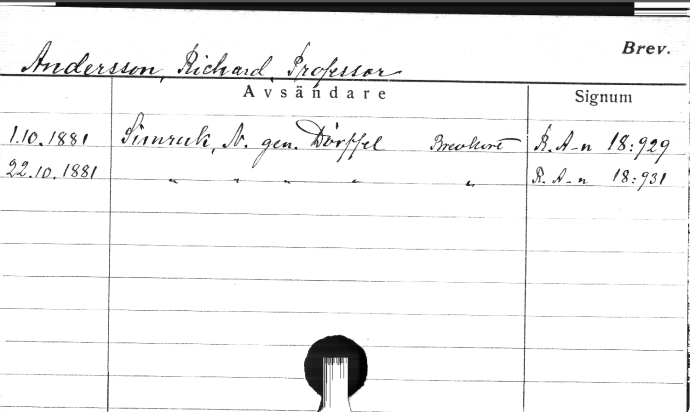 Brev.
Andersson, Richard, Professor
Avsändare Signum
1.10.1881 Simruk, N. gen. Dörffel Brevkort R. A-n 18:929
22.10.1881 " " " " " R. A-n 18:931